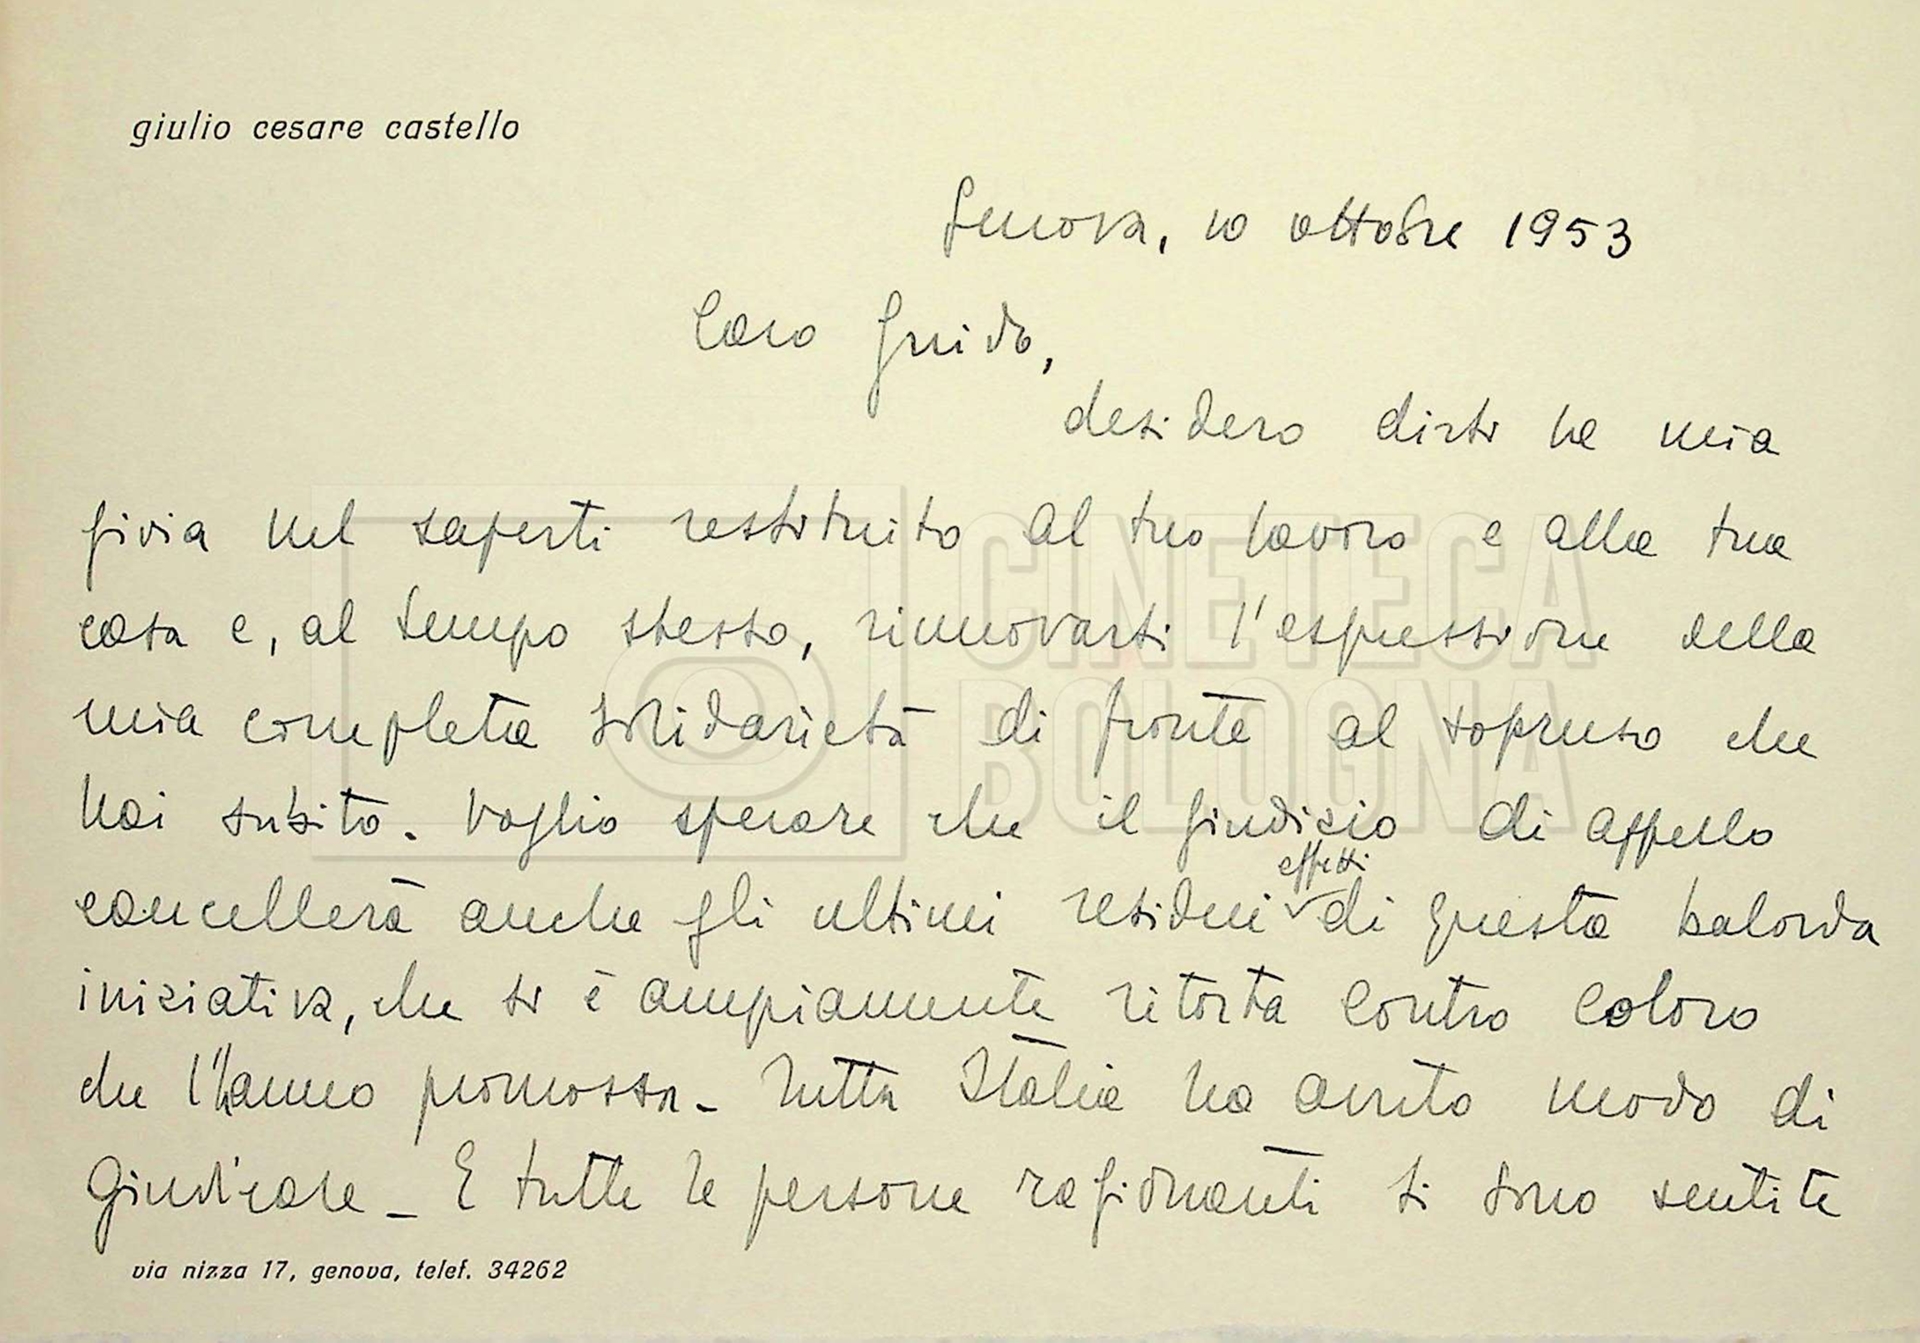 giulio cesare castello
Genova, 10 ottobre 1953
Caro Guido,
desidero dirti la mia
gioia nel saperti restituito al tuo lavoro e alla tua
casa e, al tempo stesso, rinnovarti l'espressione della
mia completa solidarietà di fronte al sopruso che
hai subito. Voglio sperare che il giudizio di appello
effetti
cancellerà anche gli ultimi residui di questa balorda
iniziativa, che si è ampiamente ritorta contro coloro
che l'hanno promossa - Tutta Italia ha avuto modo di
giudicare - E tutte le persone ragionanti si sono sentite
via nizza 17, genova, telef. 34262
CINETECA
BOLOGNA